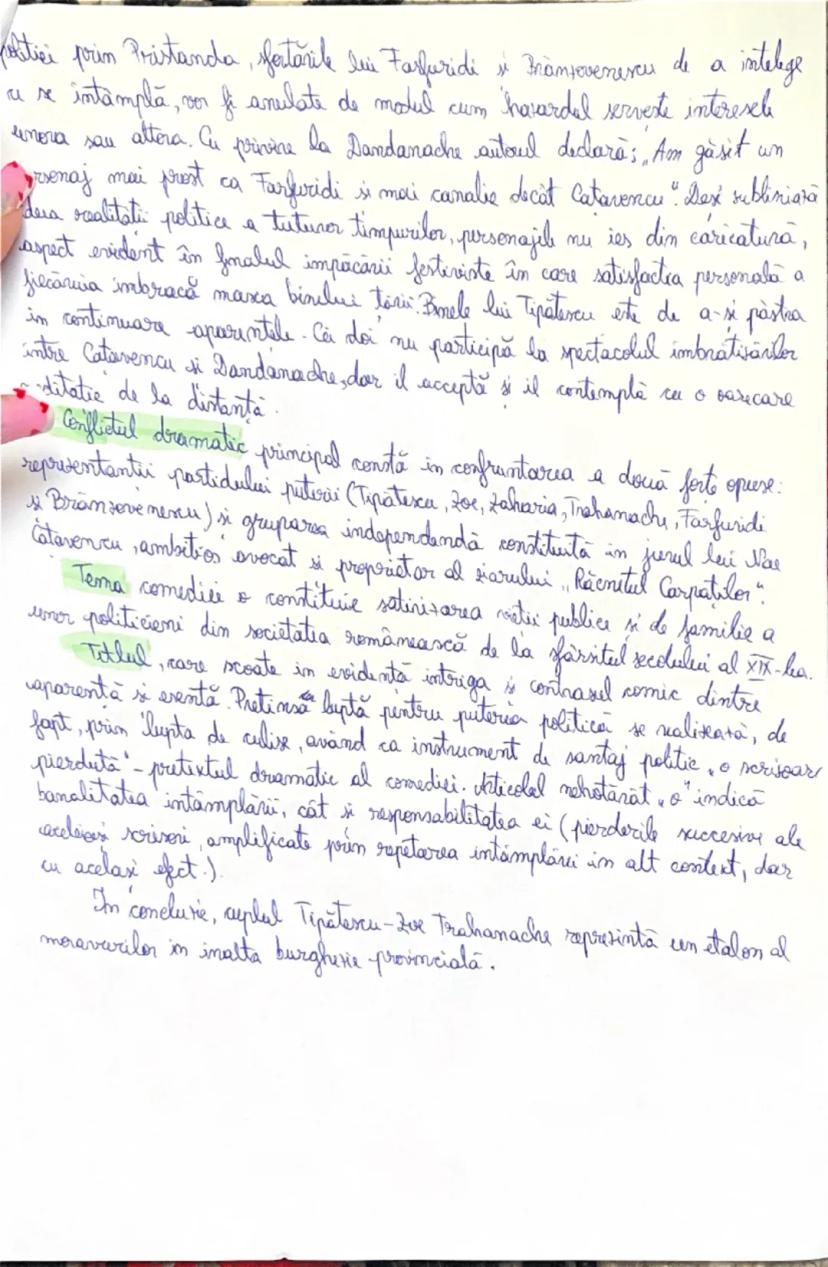 poliției prin Pristanda, sforțările lui Farfuridi și Brânzovenescu de a înțelege
ce se întâmplă, vor fi anulate de modul cum hazardul servește interesele
unora sau altora. Cu privire la Dandanache autorul declară: „Am găsit un
personaj mai prost ca Farfuridi și mai canalie decât Cațavencu". Deși subliniază
ideea realității politice a tuturor timpurilor, personajele nu ies din caricatură,
aspect evident în finalul împăcării festiviste în care satisfacția personală a
fiecăruia îmbracă masca binelui țării. Binele lui Tipătescu este de a-și păstra
în continuare aparențele. Cei doi nu participă la spectacolul îmbrățișărilor
între Cațavencu și Dandanache, dar îl acceptă și îl contemplă cu o oarecare
de la distanță.
Conflictul dramatic principal constă în confruntarea a două forțe opuse:
reprezentanții partidului puterii (Tipătescu, Zoe, Zaharia, Trahanache, Farfuridi
și Brânzovenescu) și gruparea independendă constituită în jurul lui Nae
Cațavencu, ambițios avocat și proprietar al ziarului „Răcnetul Carpaților".
Tema comediei o constituie satirizarea vieții publice și de familie a
unor politicieni din societatea românească de la sfârșitul secolului al XIX-lea.
Titlul, care scoate în evidență intriga și contrasul comic dintre
aparență și esență. Pretinsa luptă pentru puterea politică se realizează, de
fapt, prin lupta de culise, având ca instrument de șantaj politic „o scrisoare
pierdută" - pretextul dramatic al comediei. Articolul nehotărât „o" indică
banalitatea întâmplării, cât și responsabilitatea ei (pierderile succesive ale
aceleiași scrisori, amplificate prin repetarea întâmplării în alt context, dar
cu același efect.).
În concluzie, cuplul Tipătescu-Zoe Trahanache reprezintă un etalon al
moravurilor în înalta burghezie provincială.